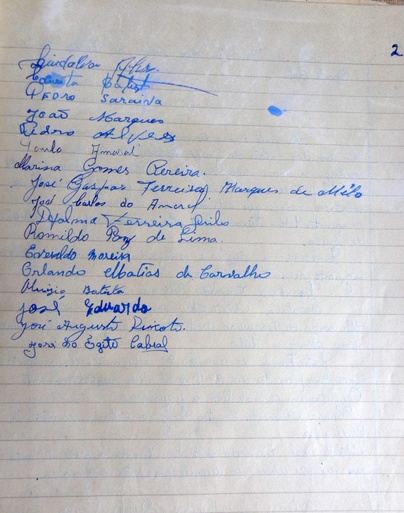 2
Batista
Pedro Saraiva
João Marques
Pedro Alves
Paulo Amaral
Marina Gomes Pereira.
José Gaspar Ferreira Marques de Mélo
José Carlos do Amaral
Djalma Ferreira Filho
Romildo de Lima
Everaldo Moreira
Orlando Matias de Carvalho
Batista
José Eduardo
José Augusto
José do Egito Cabral